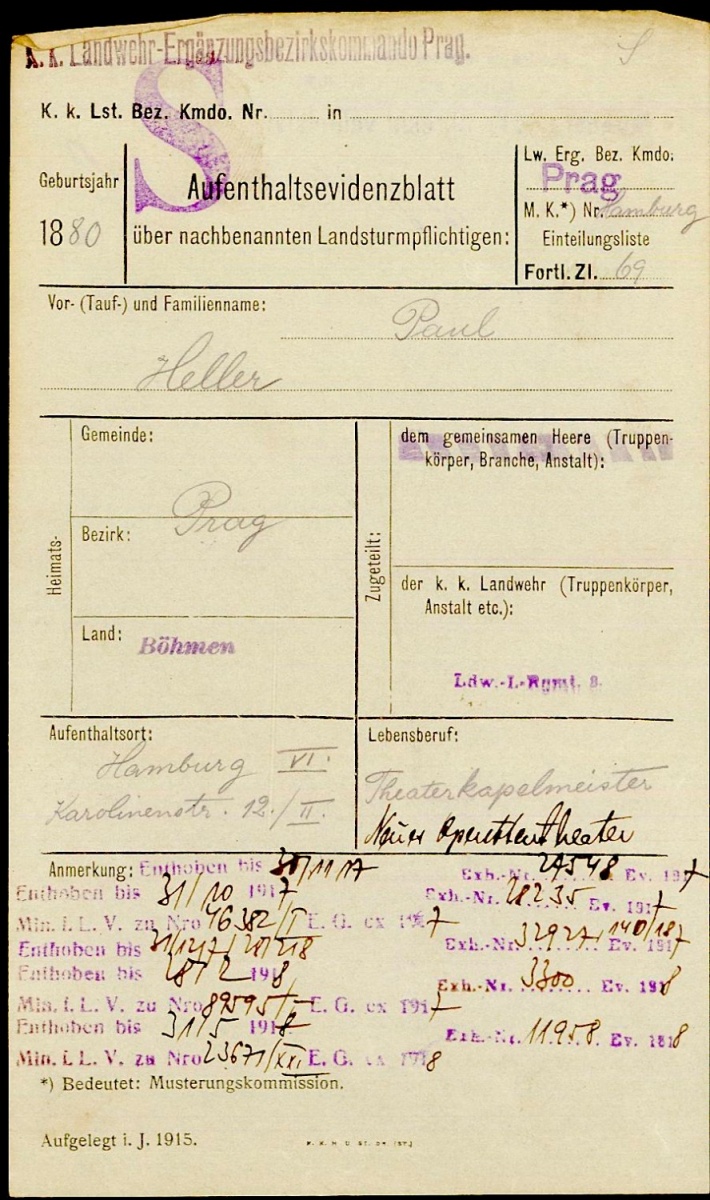 K. k. Landwehr-Ergänzungsbezirkskommando Prag.
S
K. k. Lst. Bez. Kmdo. Nr. in
S
Geburtsjahr
1880
Aufenthaltsevidenzblatt
über nachbenannten Landsturmpflichtigen:
Lw. Erg. Bez. Kmdo:
Prag
M. K.*) Nr. Hamburg
Einteilungsliste
Fortl. Zl. 69
Vor- (Tauf-) und Familienname:
Paul
Heller
Heimats-
Gemeinde:
Prag
Bezirk:
Land:
Böhmen
Zugeteilt:
dem gemeinsamen Heere (Truppen-
körper, Branche, Anstalt):
der k. k. Landwehr (Truppenkörper,
Anstalt etc.):
Ldw.-I.-Rgmt. 8.
Aufenthaltsort:
Hamburg VI.
Karolinenstr. 12./II.
Lebensberuf:
Theaterkapelmeister
Neues Operettentheater
Anmerkung: Enthoben bis 30/11 17 Exh.-Nr. 27548 Ev. 1917
Enthoben bis 31/10 1917 Exh.-Nr. 28235 Ev. 1917
Min. f. L. V. zu Nro 46382/I E. G. ex 1917
Enthoben bis 31/12 17 Exh.-Nr. 32927, 140/18 Ev. 1917
Enthoben bis 28/2 1918 Exh.-Nr. 3300 Ev. 1918
Min. f. L. V. zu Nro 89595 E. G. ex 1917
Enthoben bis 31/5 1918 Exh.-Nr. 11958 Ev. 1818
Min. f. L. V. zu Nro 23671/XXI E. G. ex 1918
*) Bedeutet: Musterungskommission.
Aufgelegt i. J. 1915.